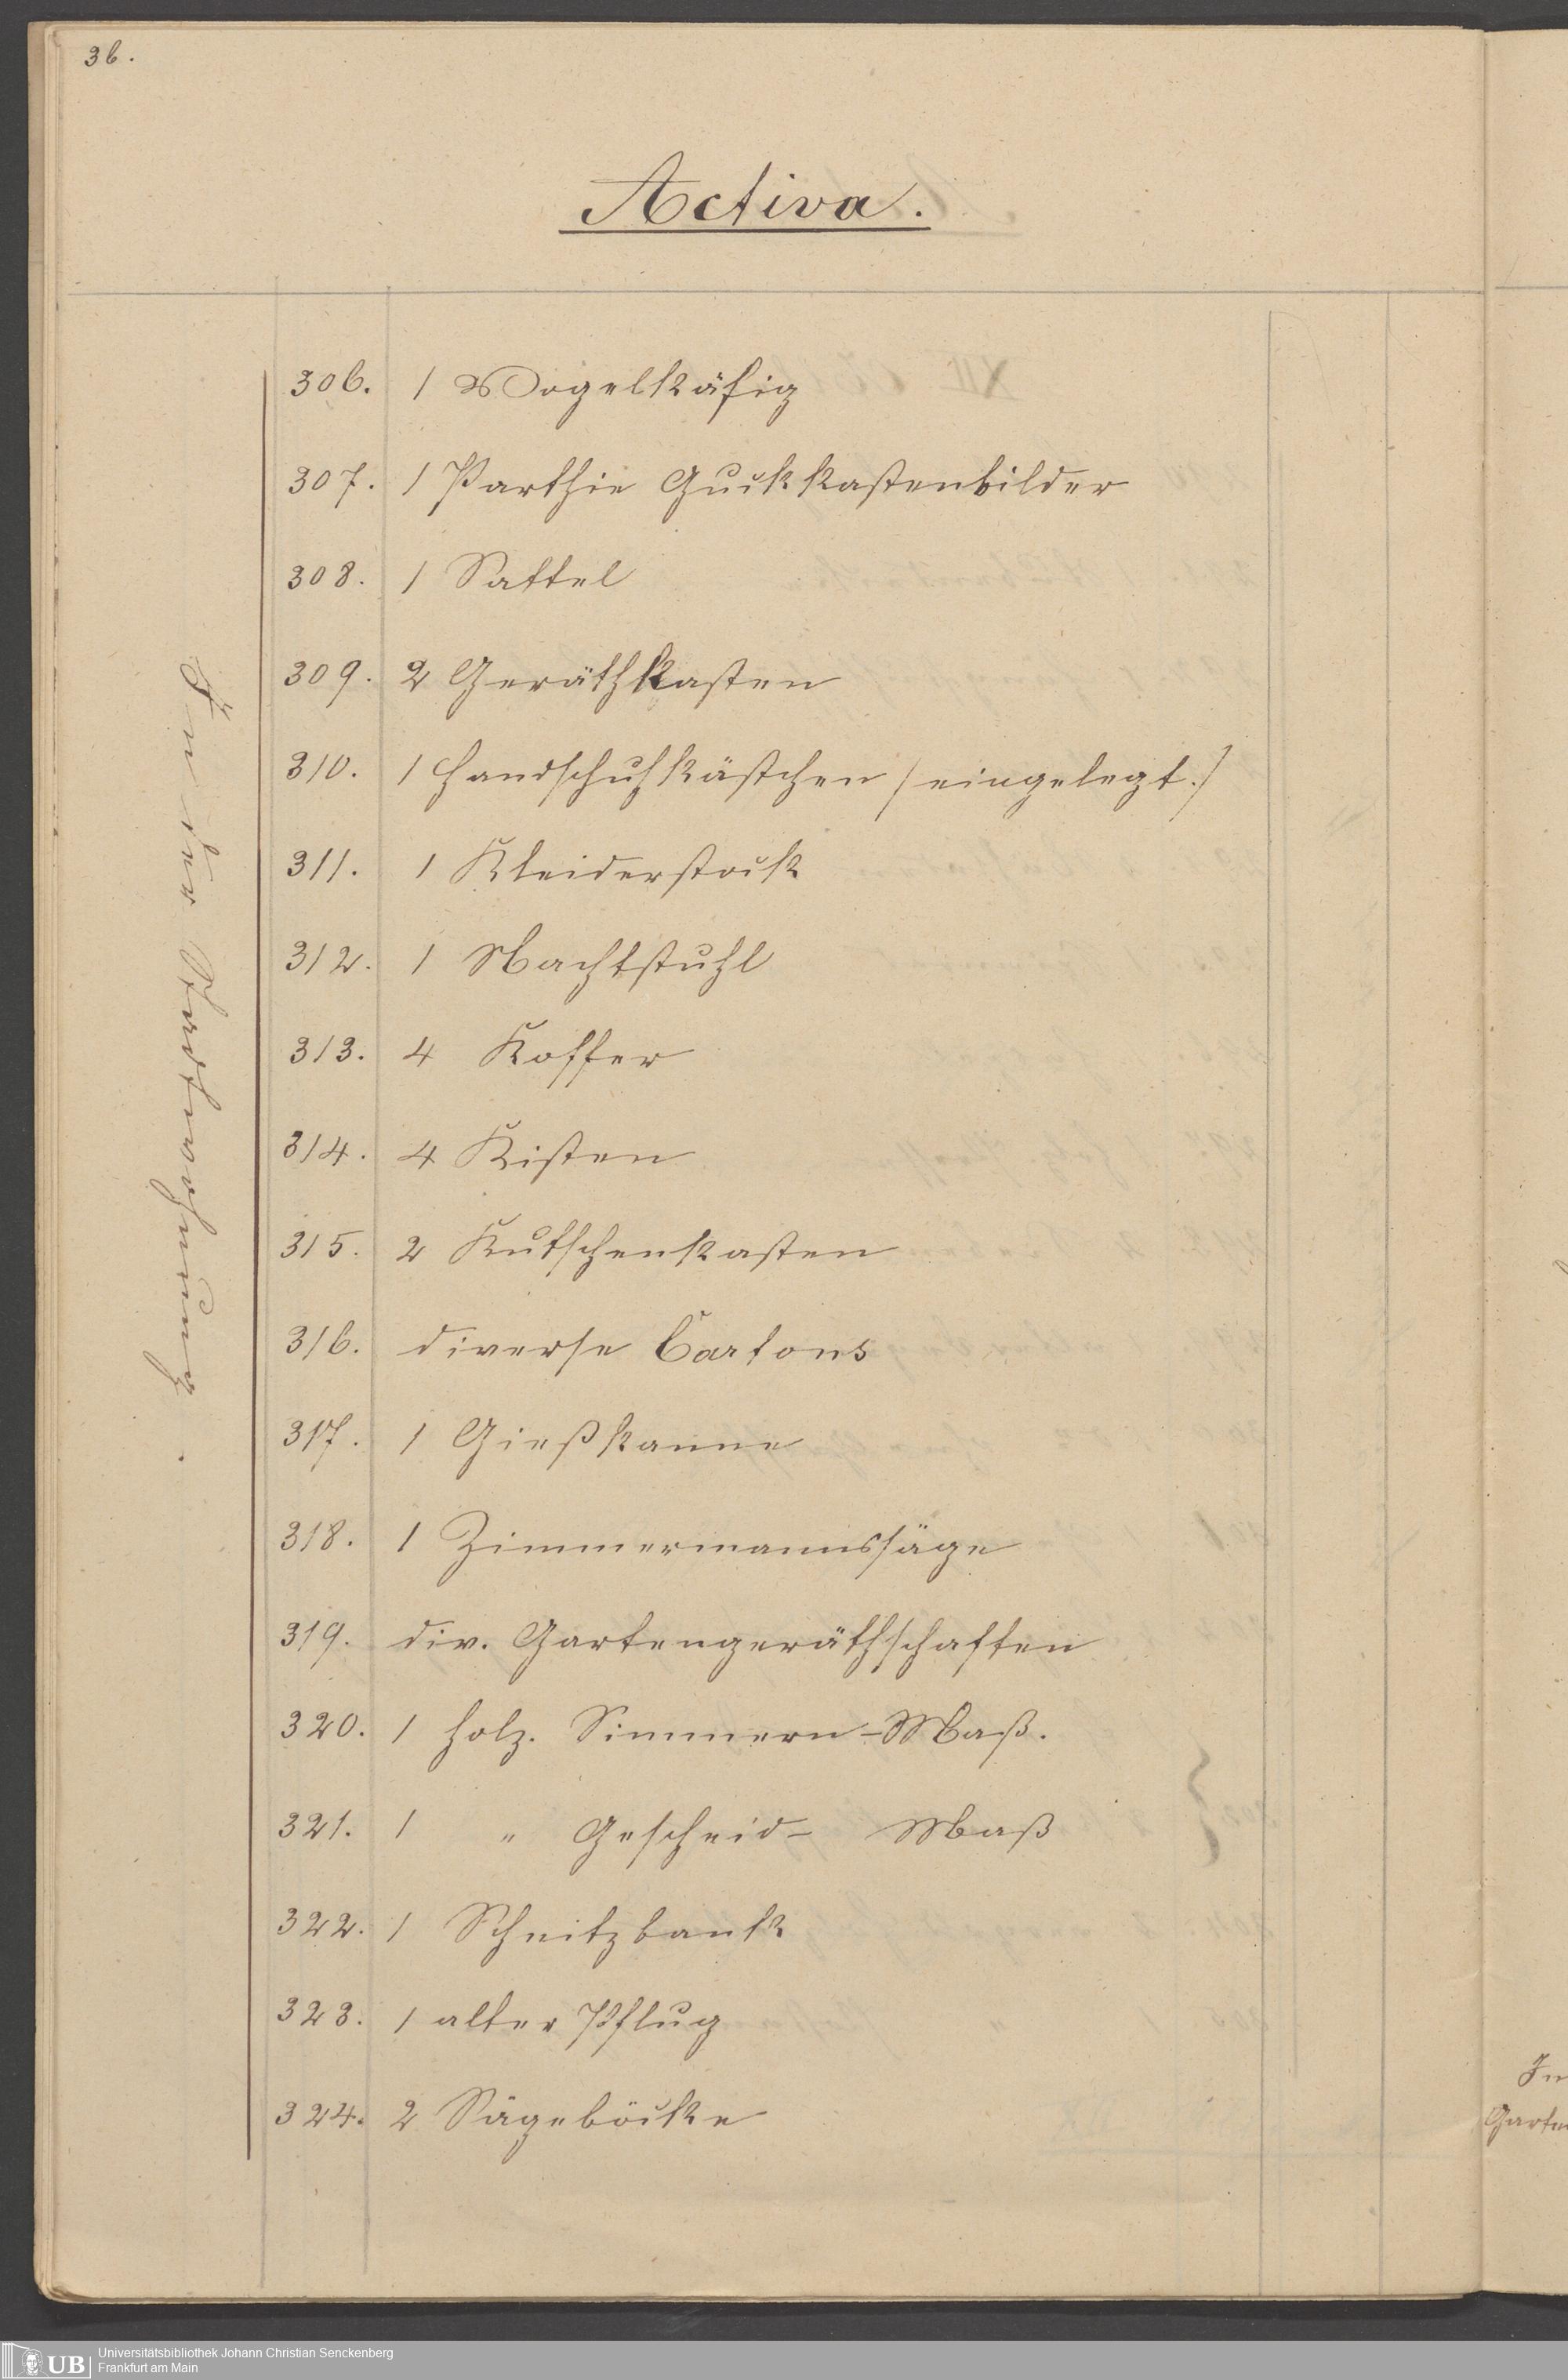 36.
Activa.
In der Stadtwohnung.
306. 1 Vogelkäfig
307. 1 Parthie Guckkastenbilder
308. 1 Sattel
309. 2 Geräthkasten
310. 1 Handschuhkästchen /eingelegt./
311. 1 Kleiderstock
312. 1 Nachtstuhl
313. 4 Koffer
314. 4 Kisten
315. 2 Kutschenkasten
316. diverse Cartons
317. 1 Gießkanne
318. 1 Zimmermannssäge
319. div. Gartengeräthschaften
320. 1 holz. Simmern-Maß.
321. 1 " Gescheid- Maß
322. 1 Schnitzbank
323. 1 alter Pflug
324. 2 Sägeböcke
In
Garten
UB
Universitätsbibliothek Johann Christian Senckenberg
Frankfurt am Main